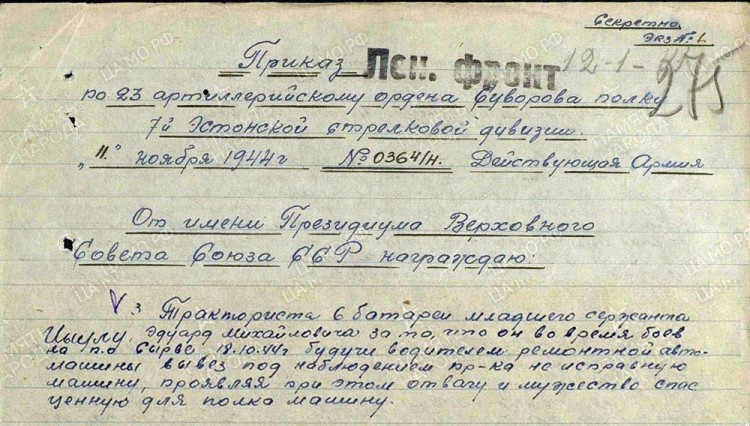 Секретно
Экз № 1.
Приказ Лен. фронт 12-1-
по 23 артиллерийскому ордена Суворова полку
7й Эстонской стрелковой дивизии.
"11." ноября 1944г №0364/н. Действующая Армия
От имени Президиума Верховного
Совета Союза ССР награждаю:
V 3. Тракториста 6 батареи младшего сержанта
Эдуард Михайловича за то, что он во время боев
на п.о Сырве 18.10.44г будучи водителем ремонтной авто-
машины вывез под наблюдением пр-ка не исправную
машину, проявляя при этом отвагу и мужество спас
ценную для полка машину.
ЦАМО.РФ.
ПАМЯТЬ
НАРОДА